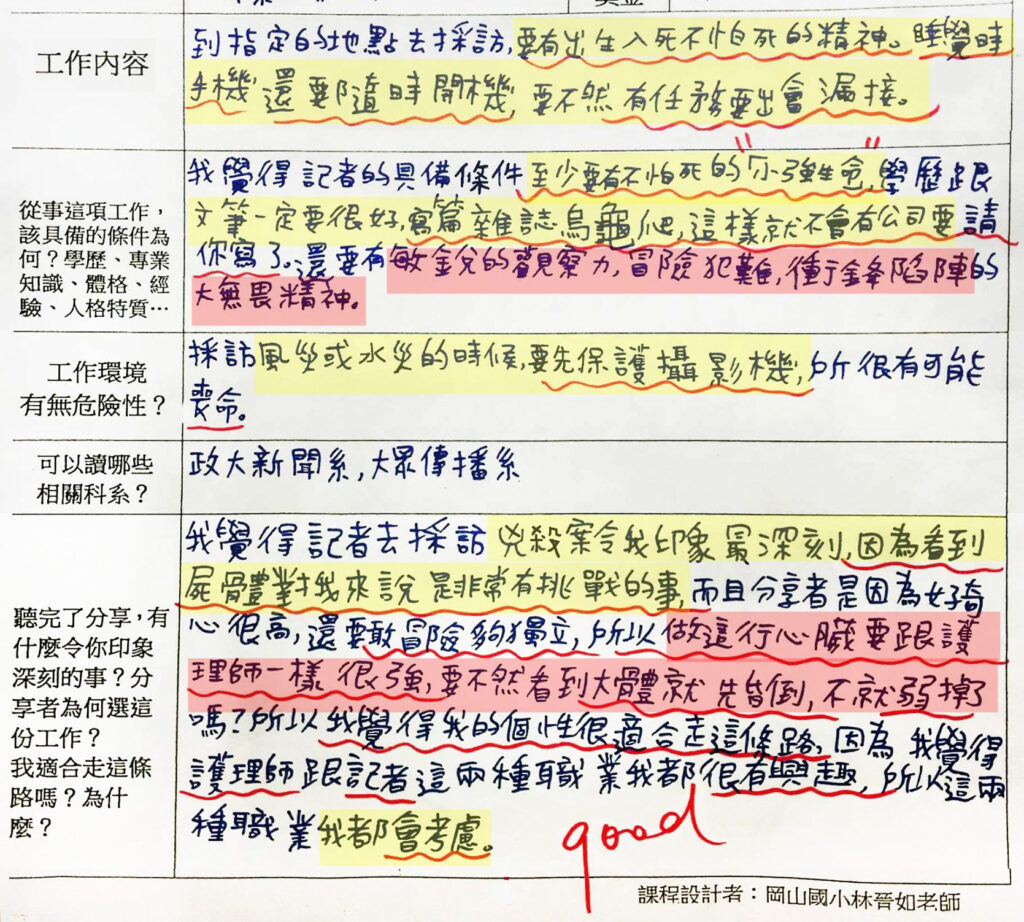 工作內容
到指定的地點去採訪,要有出生入死不怕死的精神。睡覺時
手機還要隨時開機,要不然有任務要出會漏接。
從事這項工作，
該具備的條件為
何？學歷、專業
知識、體格、經
驗、人格特質…
我覺得記者的具備條件至少要有不怕死的"小強生命",學歷跟
文筆一定要很好,寫篇雜誌烏龜爬,這樣就不會有公司要請
你寫了。還要有敏銳的觀察力,冒險犯難,衝鋒陷陣的
大無畏精神。
工作環境
有無危險性？
採訪風災或水災的時候,要先保護攝影機,所很有可能
喪命。
可以讀哪些
相關科系？
政大新聞系,大眾傳播系
聽完了分享，有
什麼令你印象
深刻的事？分
享者為何選這
份工作？
我適合走這條
路嗎？為什
麼？
我覺得記者去採訪兇殺案令我印象最深刻,因為看到
屍骨體對我來說是非常有挑戰的事,而且分享者是因為好奇
心很高,還要敢冒險夠獨立,所以做這行心臟要跟護
理師一樣很強,要不然看到大體就先昏倒,不就弱掉了
嗎?所以我覺得我的個性很適合走這條路,因為我覺得
護理師跟記者這兩種職業我都很有興趣,所以這兩
種職業我都會考慮。
good
課程設計者：岡山國小林晉如老師